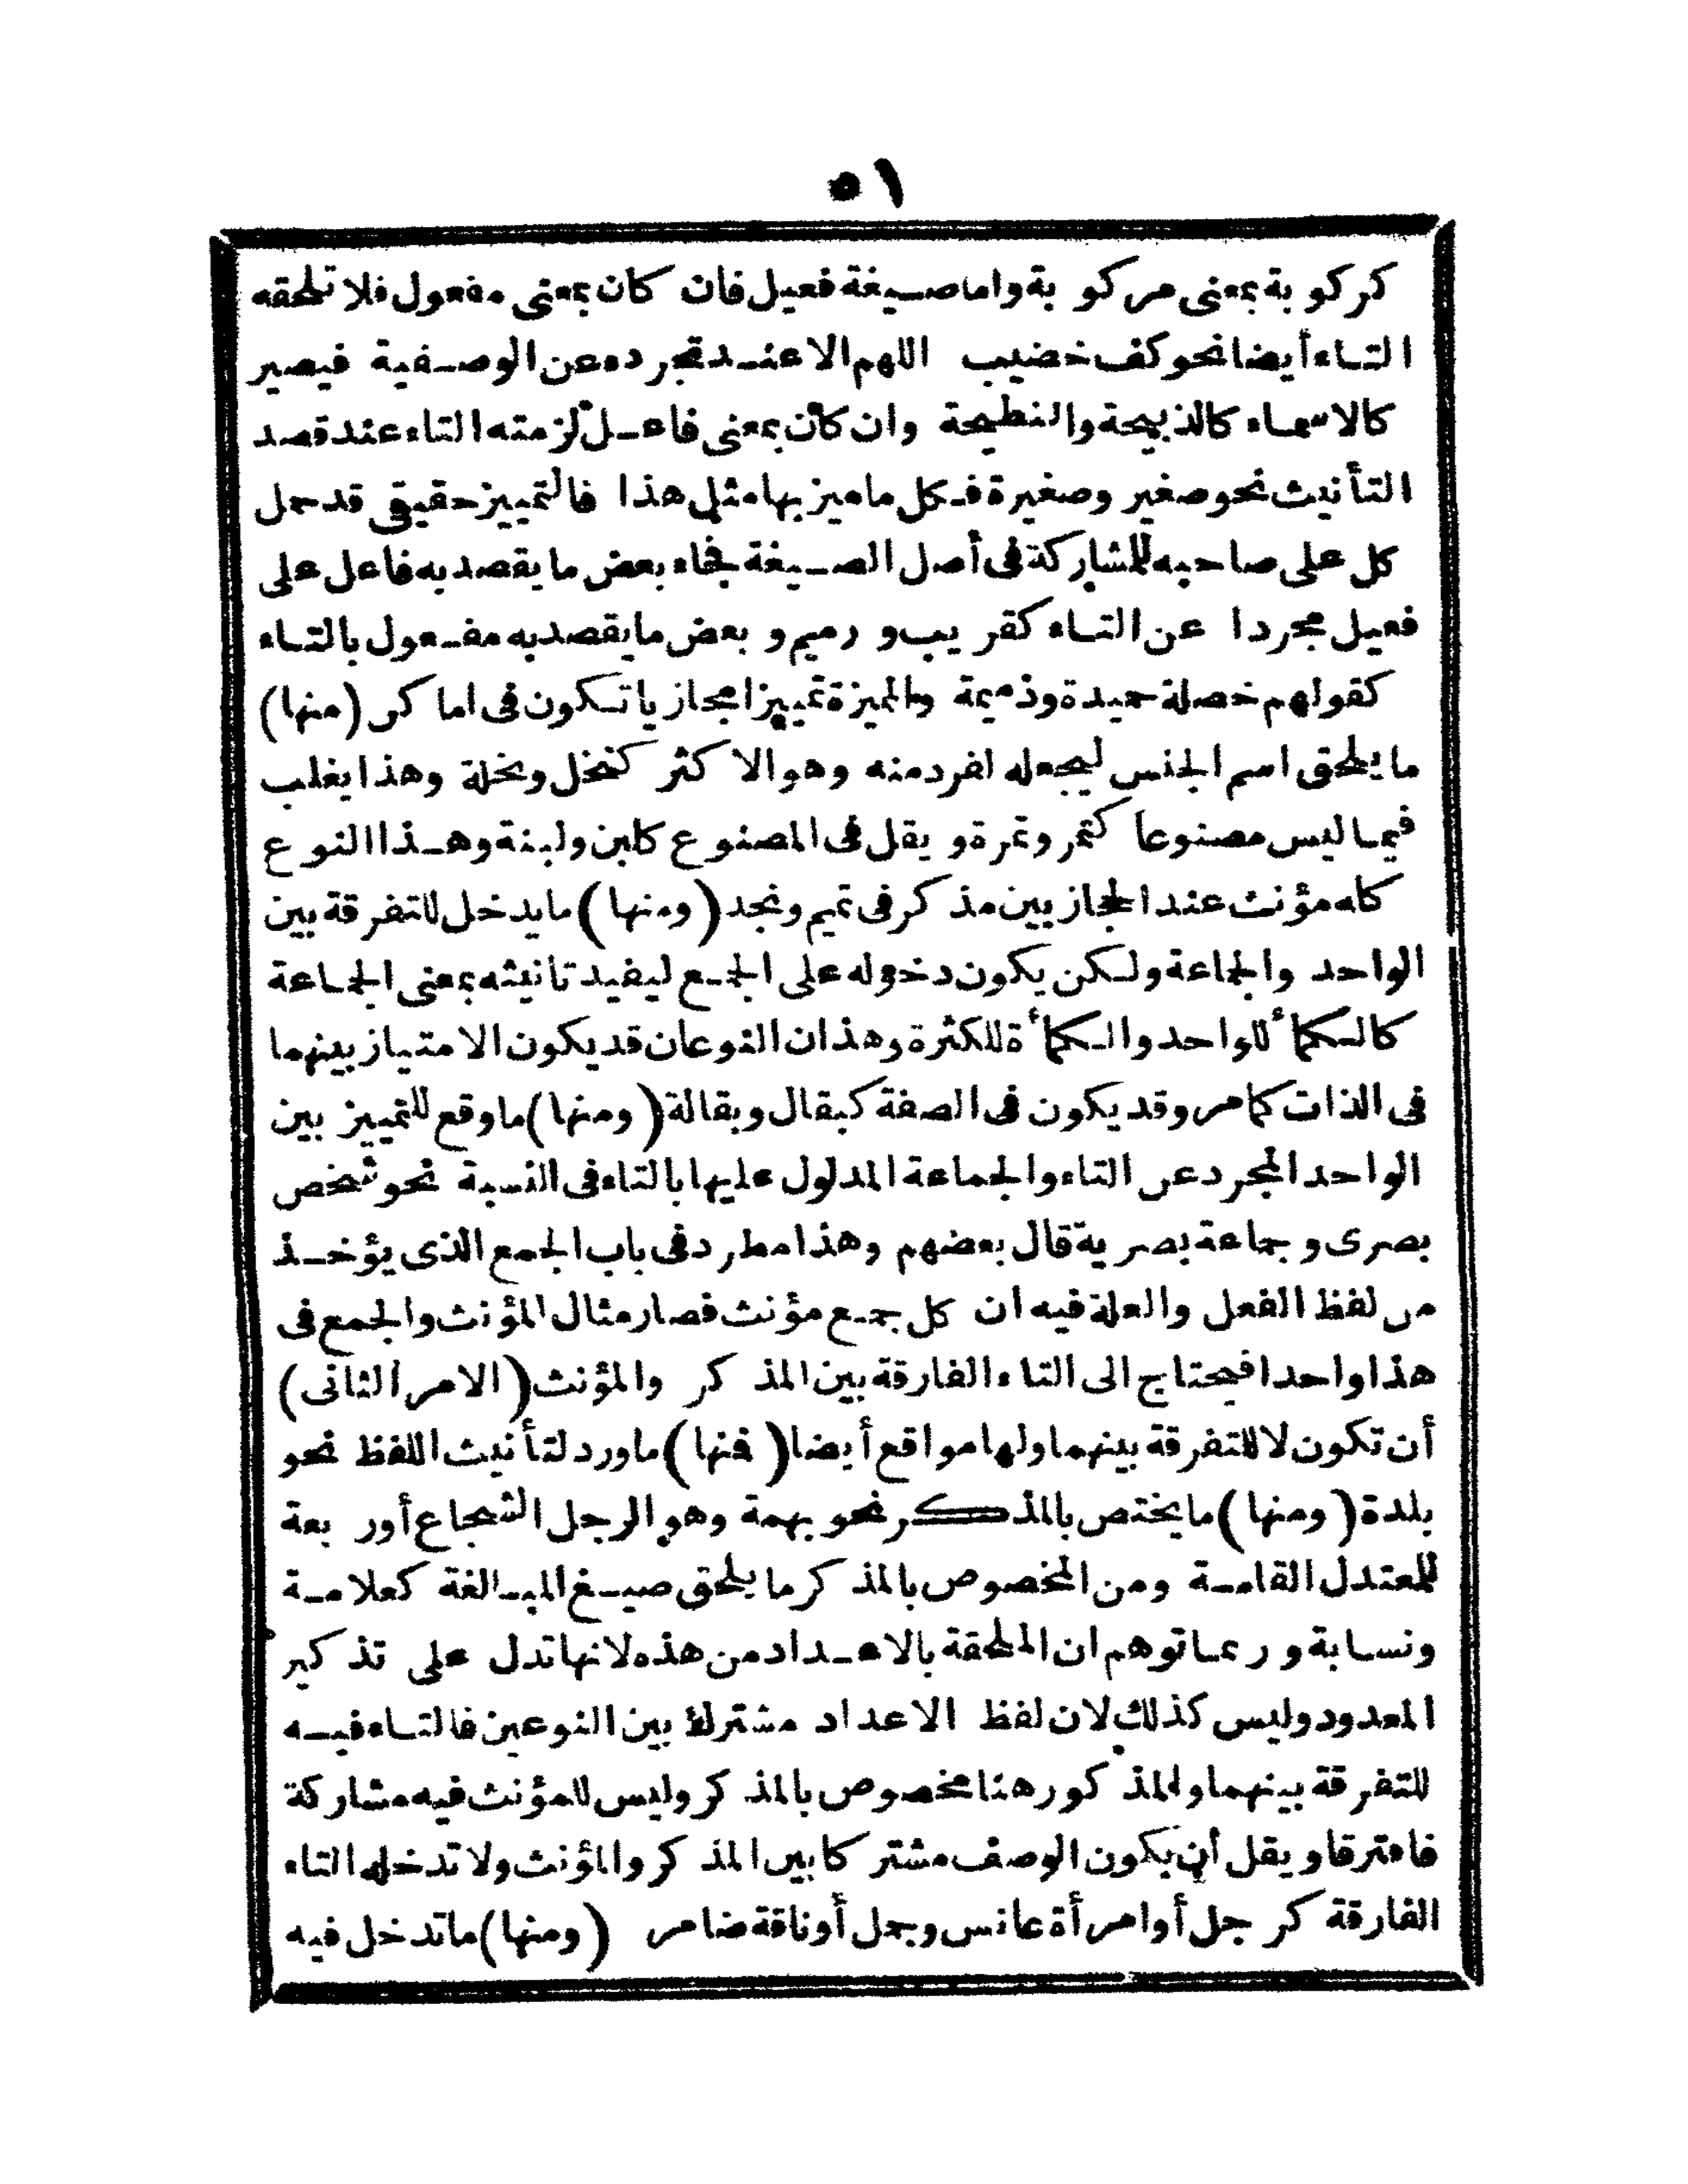 ٥١
كركوبة بمعنى مركوبة واما صيغة فعيل فان كان بمعنى مفعول فلا تلحقه
التاء أيضا نحو كف خضيب اللهم الا عند تجرده عن الوصفية فيصير
كالاسماء كالذبيحة والنطيحة وان كان بمعنى فاعل لزمته التاء عند قصد
التأنيث نحو صغير وصغيرة فكل ما ميز بها مثل هذا فالتمييز حقيقى قد حمل
كل على صاحبه للمشاركة فى أصل الصيغة فجاء بعض ما يقصد به فاعل على
فعيل مجردا عن التاء كقريب ورميم وبعض ما يقصد به مفعول بالتاء
كقولهم خصلة حميدة وذميمة والمميزة تمييزا مجازيا تكون فى اماكن (منها)
ما يلحق اسم الجنس ليجعله لفرد منه وهو الاكثر كنخل ونخلة وهذا يغلب
فيما ليس مصنوعا كتمر وتمرة ويقل فى المصنوع كلبن ولبنة وهذا النوع
كله مؤنث عند الحجازيين مذكر فى تميم ونجد (ومنها) ما يدخل للتفرقة بين
الواحد والجماعة ولكن يكون دخوله على الجمع ليفيد تانيثه بمعنى الجماعة
كالكمأ للواحد والكمأة للكثرة وهذان النوعان قد يكون الامتياز بينهما
فى الذات كما مر وقد يكون فى الصفة كبقال وبقالة (ومنها) ما وقع للتمييز بين
الواحد المجرد عن التاء والجماعة المدلول عليها بالتاء فى النسبة نحو شخص
بصرى وجماعة بصرية قال بعضهم وهذا مطرد فى باب الجمع الذى يؤخذ
من لفظ الفعل والعلة فيه ان كل جمع مؤنث فصار مثال المؤنث والجمع فى
هذا واحدا فيحتاج الى التاء الفارقة بين المذكر والمؤنث (الامر الثانى)
أن تكون لا للتفرقة بينهما ولها مواقع أيضا (فمنها) ما ورد لتأنيث اللفظ نحو
بلدة (ومنها) ما يختص بالمذكر نحو بهمة وهو الرجل الشجاع أو ربعة
للمعتدل القامة ومن المخصوص بالمذكر ما يلحق صيغ المبالغة كعلامة
ونسابة وربما توهم ان الملحقة بالاعداد من هذه لانها تدل على تذكير
المعدود وليس كذلك لان لفظ الاعداد مشترك بين النوعين فالتاء فيه
للتفرقة بينهما والمذكور هنا مخصوص بالمذكر وليس للمؤنث فيه مشاركة
فافترقا ويقل أن يكون الوصف مشتركا بين المذكر والمؤنث ولا تدخله التاء
الفارقة كرجل أو امرأة عانس وجمل أو ناقة ضامر (ومنها) ما تدخل فيه